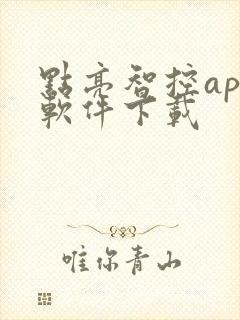 點亮智控ap
軟件下載
唯你青山